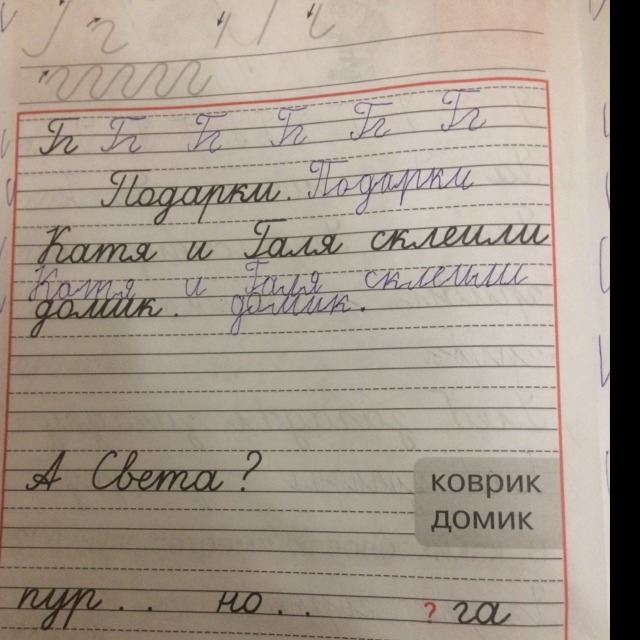 Гг Гг Гг Гг Гг Гг
Подарки. Подарки
Катя и Галя склеили
Катя и Галя склеили
домик. домик.
А Света?
коврик
домик
пур.. но.. ? га